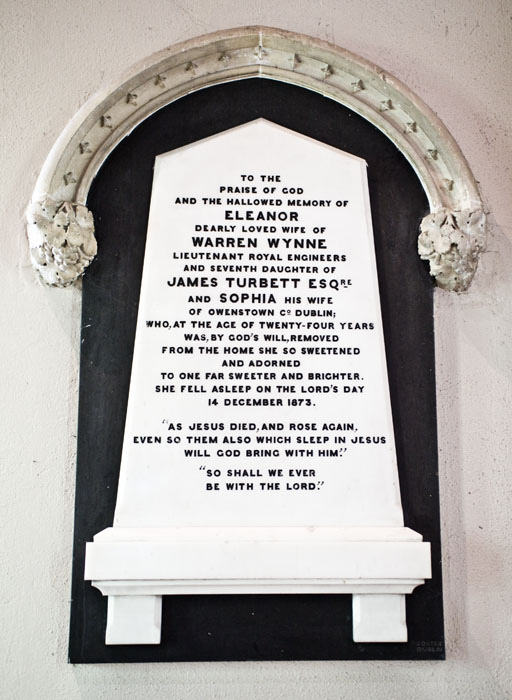 TO THE
PRAISE OF GOD
AND THE HALLOWED MEMORY OF
ELEANOR
DEARLY LOVED WIFE OF
WARREN WYNNE
LIEUTENANT ROYAL ENGINEERS
AND SEVENTH DAUGHTER OF
JAMES TURBETT ESQRE
AND SOPHIA HIS WIFE
OF OWENSTOWN CO DUBLIN;
WHO, AT THE AGE OF TWENTY-FOUR YEARS
WAS, BY GOD'S WILL, REMOVED
FROM THE HOME SHE SO SWEETENED
AND ADORNED
TO ONE FAR SWEETER AND BRIGHTER.
SHE FELL ASLEEP ON THE LORD'S DAY
14 DECEMBER 1873.
"AS JESUS DIED, AND ROSE AGAIN,
EVEN SO THEM ALSO WHICH SLEEP IN JESUS
WILL GOD BRING WITH HIM."
"SO SHALL WE EVER
BE WITH THE LORD."
DUBLIN